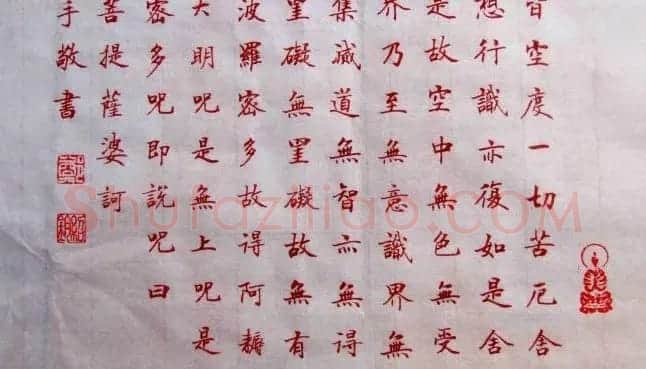 皆空度一切苦厄舍
想行識亦復如是舍
是故空中無色無受
界乃至無意識界無
集滅道無智亦無得
罣礙無罣礙故無有
波羅密多故得阿耨
大明呪是無上呪是
密多呪即說呪曰
菩提薩婆訶
手敬書